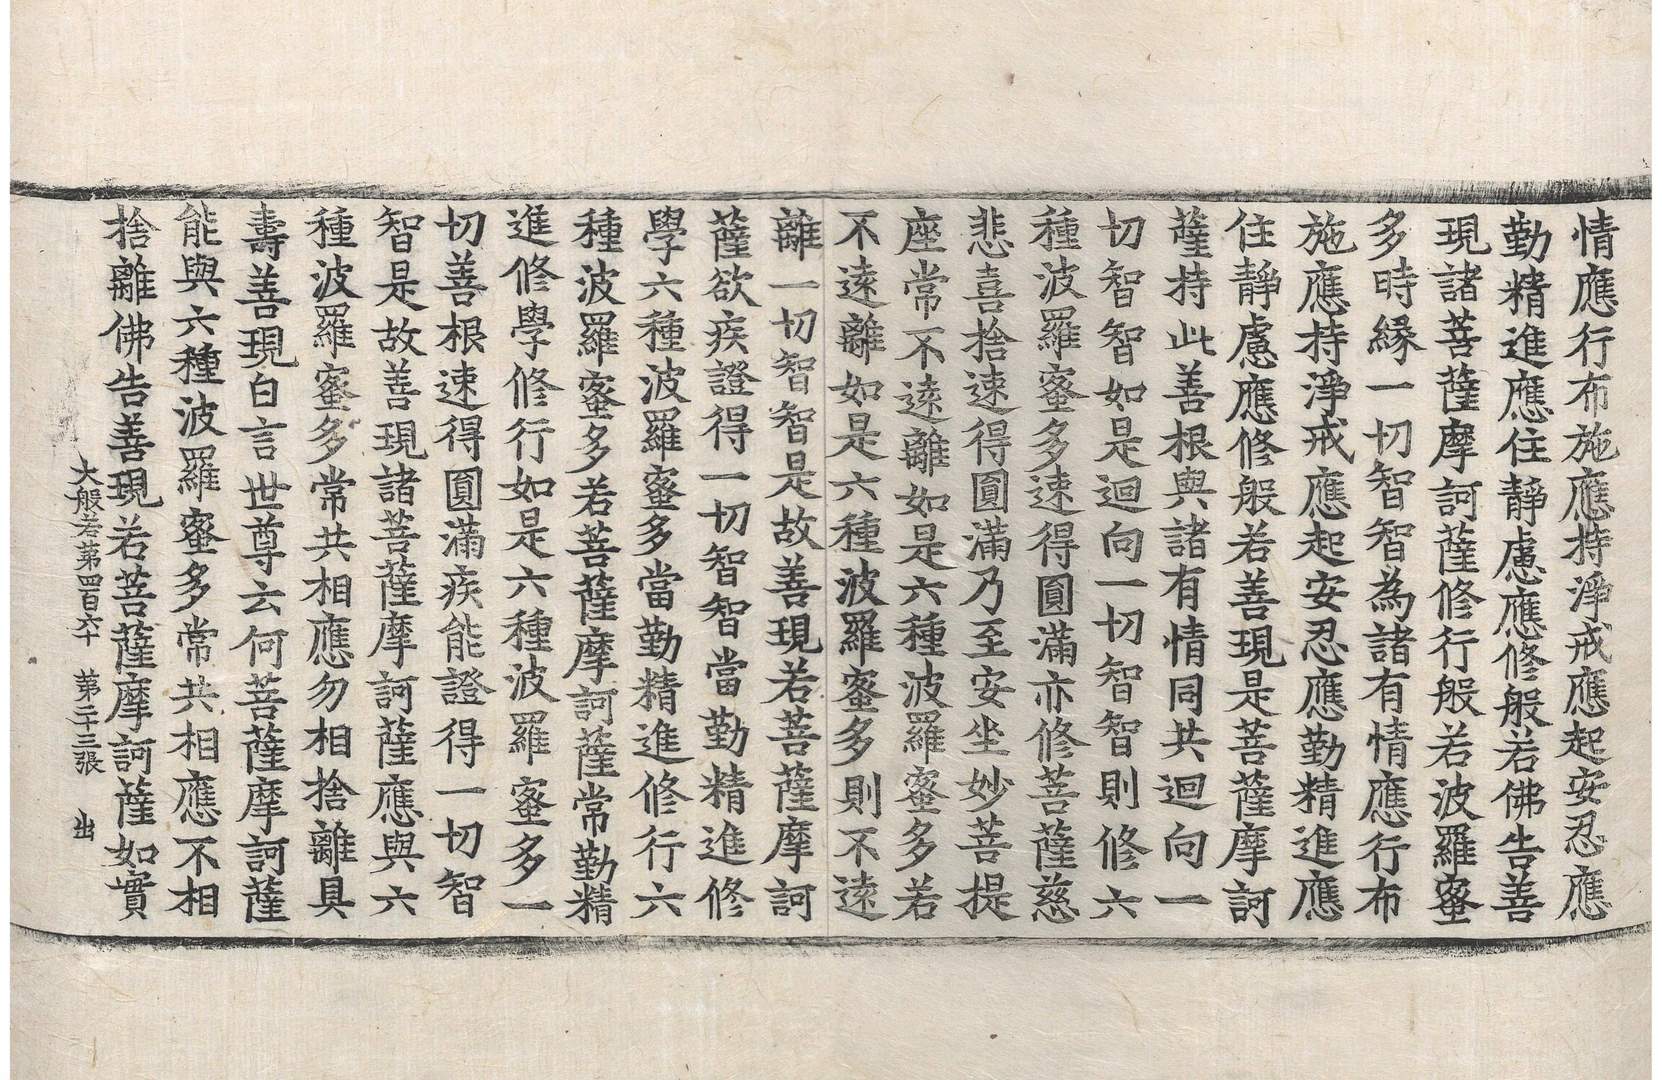 情應行布施應持淨戒應起安忍應
勤精進應住靜慮應修般若佛告善
現諸菩薩摩訶薩修行般若波羅蜜
多時緣一切智智為諸有情應行布
施應持淨戒應起安忍應勤精進應
住靜慮應修般若善現是菩薩摩訶
薩持此善根與諸有情同共迴向一
切智智如是迴向一切智智則修六
種波羅蜜多速得圓滿亦修菩薩慈
悲喜捨速得圓滿乃至安坐妙菩提
座常不遠離如是六種波羅蜜多若
不遠離如是六種波羅蜜多則不遠
離一切智智是故善現若菩薩摩訶
薩欲疾證得一切智智當勤精進修
學六種波羅蜜多當勤精進修行六
種波羅蜜多若菩薩摩訶薩常勤精
進修學修行如是六種波羅蜜多一
切善根速得圓滿疾能證得一切智
智是故善現諸菩薩摩訶薩應與六
種波羅蜜多常共相應勿相捨離具
壽善現白言世尊云何菩薩摩訶薩
能與六種波羅蜜多常共相應不相
捨離佛告善現若菩薩摩訶薩如實
大般若第四百六十 第二十三張 出